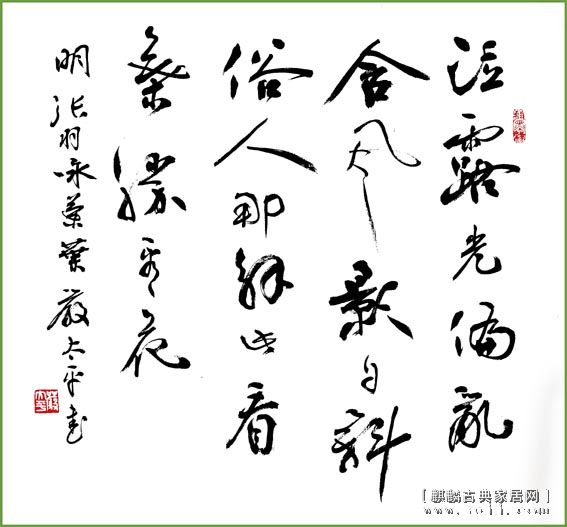 泣露光偏亂
含风影自斜
俗人那解此看
葉勝看花
明 张羽咏蘭葉 嚴太平书
[麒麟古典家居网]